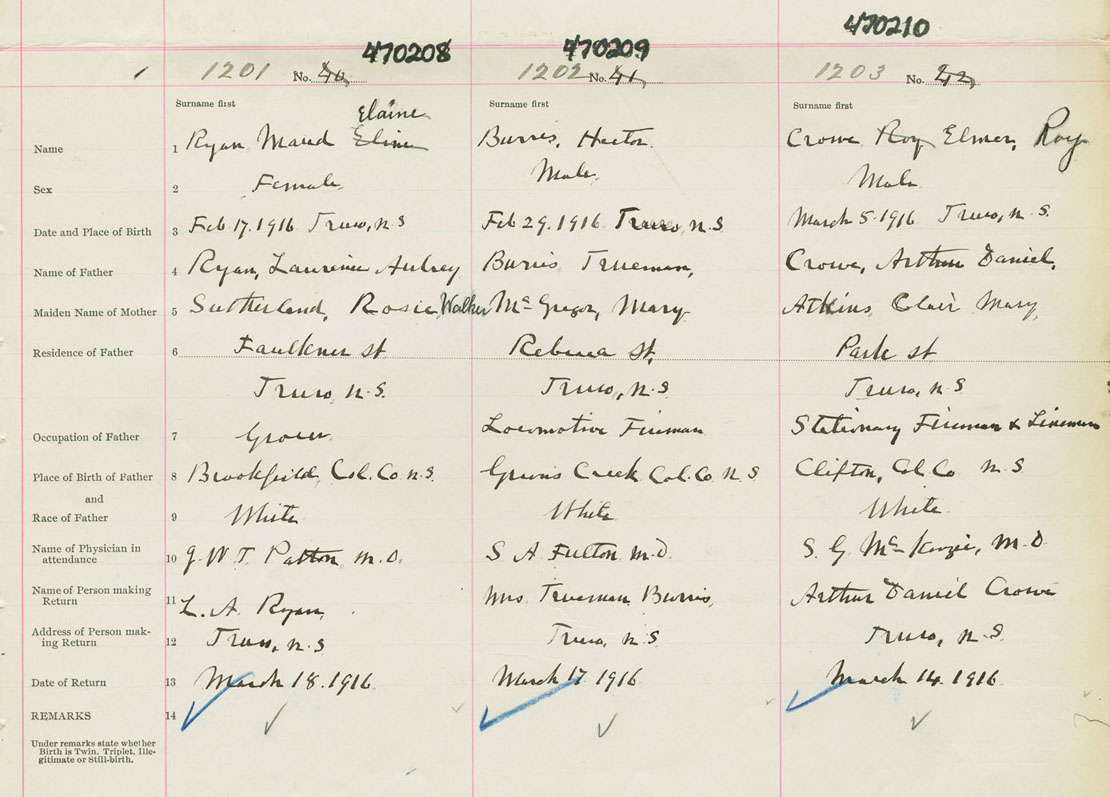 470208 470209 470210
1201 No. 40 1202 No. 41 1203 No. 42
Surname first Surname first Surname first
Elaine
Name 1 Ryan, Maud Eline Burris, Hector. Crowe, Roy Elmer, Roy
Sex 2 Female, Male, Male
Date and Place of Birth 3 Feb 17. 1916 Truro, n.S Feb 29. 1916. Truro, n.S March 5. 1916 Truro, n.S.
Name of Father 4 Ryan, Laurence Aubrey Burris, Trueman, Crowe, Arthur Daniel,
Maiden Name of Mother 5 Sutherland, Rosie Walker McGregor, Mary Atkins, Clair Mary,
Residence of Father 6 Faulkner st Rebecca St, Park st
Truro, n.S. Truro, n.S Truro, n.S
Occupation of Father 7 Grocer Locomotive Fireman Stationary Fireman & Lineman
Place of Birth of Father 8 Brookfield, Col. Co. n.S. Greens Creek Col. Co. n.S Clifton, Col Co. n.S
and
Race of Father 9 White White White.
Name of Physician in
attendance 10 J. W. T. Patton, M.D. S. A. Fulton M.D. S. G. McKenzie, M.D
Name of Person making
Return 11 L. A. Ryan, Mrs. Trueman Burris, Arthur Daniel Crowe
Address of Person mak-
ing Return 12 Truro, n.S Truro, n.S Truro, n.S.
Date of Return 13 March 18. 1916. March 17 1916 March 14. 1916
REMARKS 14
Under remarks state whether
Birth is Twin, Triplet, Ille-
gitimate or Still-birth.